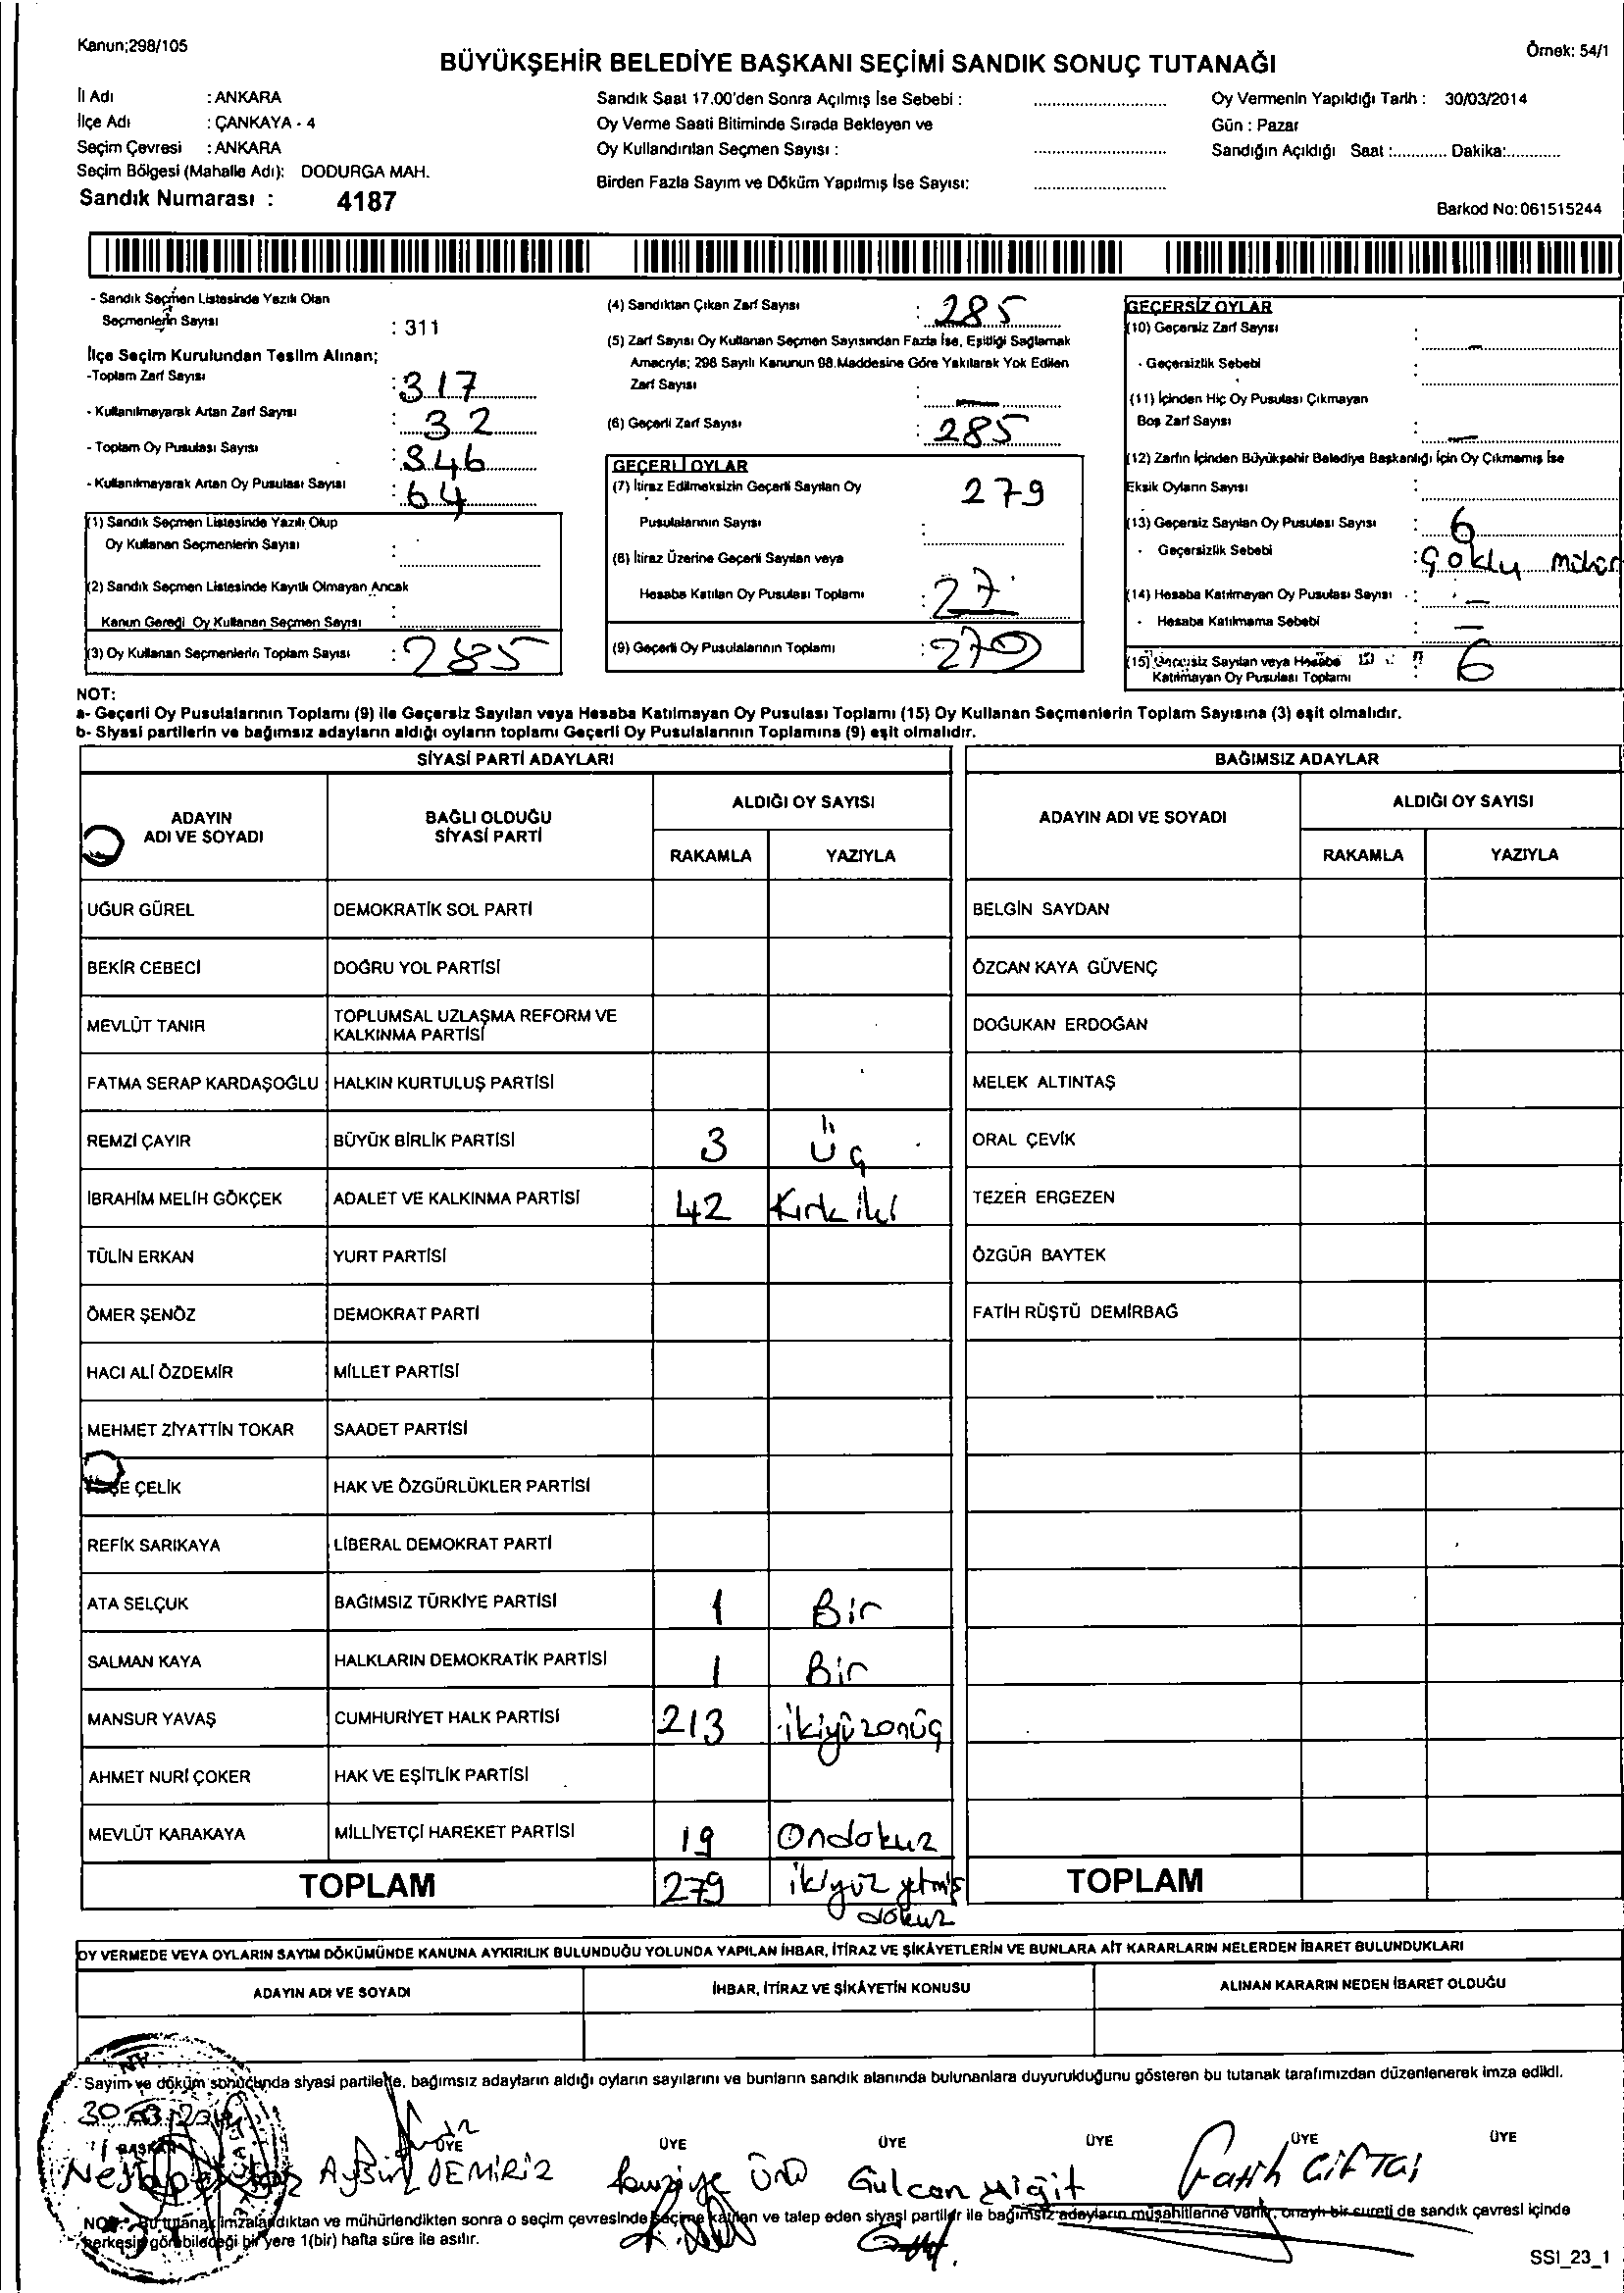 Kanun;298/105
Örnek: 54/1
BÜYÜKŞEHİR BELEDİYE BAŞKANI SEÇİMİ SANDIK SONUÇ TUTANAĞI
İl Adı : ANKARA
İlçe Adı : ÇANKAYA - 4
Seçim Çevresi : ANKARA
Seçim Bölgesi (Mahalle Adı): DODURGA MAH.
Sandık Numarası : 4187
Sandık Saat 17.00'den Sonra Açılmış İse Sebebi :
Oy Verme Saati Bitiminde Sırada Bekleyen ve
Oy Kullandırılan Seçmen Sayısı :
Birden Fazla Sayım ve Döküm Yapılmış İse Sayısı:
Oy Vermenin Yapıldığı Tarih : 30/03/2014
Gün : Pazar
Sandığın Açıldığı Saat :............ Dakika:............
Barkod No: 061515244
- Sandık Seçmen Listesinde Yazılı Olan
Seçmenlerin Sayısı : 311
İlçe Seçim Kurulundan Teslim Alınan;
-Toplam Zarf Sayısı : 317
- Kullanılmayarak Artan Zarf Sayısı : 32
- Toplam Oy Pusulası Sayısı : 346
- Kullanılmayarak Artan Oy Pusulası Sayısı : 64
(1) Sandık Seçmen Listesinde Yazılı Olup
Oy Kullanan Seçmenlerin Sayısı :
(2) Sandık Seçmen Listesinde Kayıtlı Olmayan Ancak
Kanun Gereği Oy Kullanan Seçmen Sayısı :
(3) Oy Kullanan Seçmenlerin Toplam Sayısı : 285
(4) Sandıktan Çıkan Zarf Sayısı : 285
(5) Zarf Sayısı Oy Kullanan Seçmen Sayısından Fazla İse, Eşitliği Sağlamak
Amacıyla; 298 Sayılı Kanunun 98.Maddesine Göre Yakılarak Yok Edilen
Zarf Sayısı : -
(6) Geçerli Zarf Sayısı : 285
GEÇERLİ OYLAR
(7) İtiraz Edilmeksizin Geçerli Sayılan Oy 279
Pusulalarının Sayısı :
(8) İtiraz Üzerine Geçerli Sayılan veya
Hesaba Katılan Oy Pusulası Toplamı : 27
(9) Geçerli Oy Pusulalarının Toplamı : 279
GEÇERSİZ OYLAR
(10) Geçersiz Zarf Sayısı : -
- Geçersizlik Sebebi :
(11) İçinden Hiç Oy Pusulası Çıkmayan
Boş Zarf Sayısı : -
(12) Zarfın İçinden Büyükşehir Belediye Başkanlığı İçin Oy Çıkmamış İse
Eksik Oyların Sayısı :
(13) Geçersiz Sayılan Oy Pusulası Sayısı : 6
- Geçersizlik Sebebi : Çoklu
(14) Hesaba Katılmayan Oy Pusulası Sayısı : -
- Hesaba Katılmama Sebebi : -
(15) Geçersiz Sayılan veya Hesaba
Katılmayan Oy Pusulası Toplamı : 6
NOT:
a- Geçerli Oy Pusulalarının Toplamı (9) ile Geçersiz Sayılan veya Hesaba Katılmayan Oy Pusulası Toplamı (15) Oy Kullanan Seçmenlerin Toplam Sayısına (3) eşit olmalıdır.
b- Siyasi partilerin ve bağımsız adayların aldığı oyların toplamı Geçerli Oy Pusulalarının Toplamına (9) eşit olmalıdır.
SİYASİ PARTİ ADAYLARI
BAĞIMSIZ ADAYLAR
ADAYIN ADI VE SOYADI
BAĞLI OLDUĞU SİYASİ PARTİ
ALDIĞI OY SAYISI
RAKAMLA YAZIYLA
ADAYIN ADI VE SOYADI
ALDIĞI OY SAYISI
RAKAMLA YAZIYLA
UĞUR GÜREL DEMOKRATİK SOL PARTİ BELGİN SAYDAN
BEKİR CEBECİ DOĞRU YOL PARTİSİ ÖZCAN KAYA GÜVENÇ
MEVLÜT TANIR TOPLUMSAL UZLAŞMA REFORM VE KALKINMA PARTİSİ DOĞUKAN ERDOĞAN
FATMA SERAP KARDAŞOĞLU HALKIN KURTULUŞ PARTİSİ MELEK ALTINTAŞ
REMZİ ÇAYIR BÜYÜK BİRLİK PARTİSİ 3 Üç ORAL ÇEVİK
İBRAHİM MELİH GÖKÇEK ADALET VE KALKINMA PARTİSİ 42 Kırk iki TEZER ERGEZEN
TÜLİN ERKAN YURT PARTİSİ ÖZGÜR BAYTEK
ÖMER ŞENÖZ DEMOKRAT PARTİ FATİH RÜŞTÜ DEMİRBAĞ
HACI ALİ ÖZDEMİR MİLLET PARTİSİ
MEHMET ZİYATTİN TOKAR SAADET PARTİSİ
ÇELİK HAK VE ÖZGÜRLÜKLER PARTİSİ
REFİK SARIKAYA LİBERAL DEMOKRAT PARTİ
ATA SELÇUK BAĞIMSIZ TÜRKİYE PARTİSİ 1 Bir
SALMAN KAYA HALKLARIN DEMOKRATİK PARTİSİ 1 Bir
MANSUR YAVAŞ CUMHURİYET HALK PARTİSİ 213 ikiyüzonüç
AHMET NURİ ÇOKER HAK VE EŞİTLİK PARTİSİ
MEVLÜT KARAKAYA MİLLİYETÇİ HAREKET PARTİSİ 19 Ondokuz
TOPLAM 279 ikiyüz yetmiş dokuz TOPLAM
OY VERMEDE VEYA OYLARIN SAYIM DÖKÜMÜNDE KANUNA AYKIRILIK BULUNDUĞU YOLUNDA YAPILAN İHBAR, İTİRAZ VE ŞİKÂYETLERİN VE BUNLARA AİT KARARLARIN NELERDEN İBARET BULUNDUKLARI
ADAYIN ADI VE SOYADI İHBAR, İTİRAZ VE ŞİKÂYETİN KONUSU ALINAN KARARIN NEDEN İBARET OLDUĞU
Sayım ve döküm sonucunda siyasi partilerle, bağımsız adayların aldığı oyların sayılarını ve bunların sandık alanında bulunanlara duyurulduğunu gösteren bu tutanak tarafımızdan düzenlenerek imza edildi.
30.03.2014
BAŞKAN ÜYE ÜYE ÜYE ÜYE ÜYE ÜYE
DEMİRİZ Gülcan Yiğit Fatih ÇİFTÇİ
NOT: Bu tutanak imzalandıktan ve mühürlendikten sonra o seçim çevresinde seçime katılan ve talep eden siyasi partiler ile bağımsız adayların müşahitlerine verilir, onaylı bir sureti de sandık çevresi içinde
herkesin görebileceği bir yere 1(bir) hafta süre ile asılır.
SSI_23_1